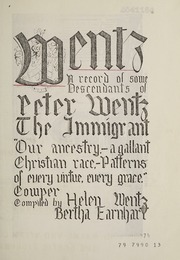 Wentz
A record of some
Descendants of
Peter Wentz
The Immigrant
"Our ancestry,—a gallant
Christian race,—Patterns
of every virtue, every grace."
Cowper
Compiled by Helen Wentz
Bertha Earnhart